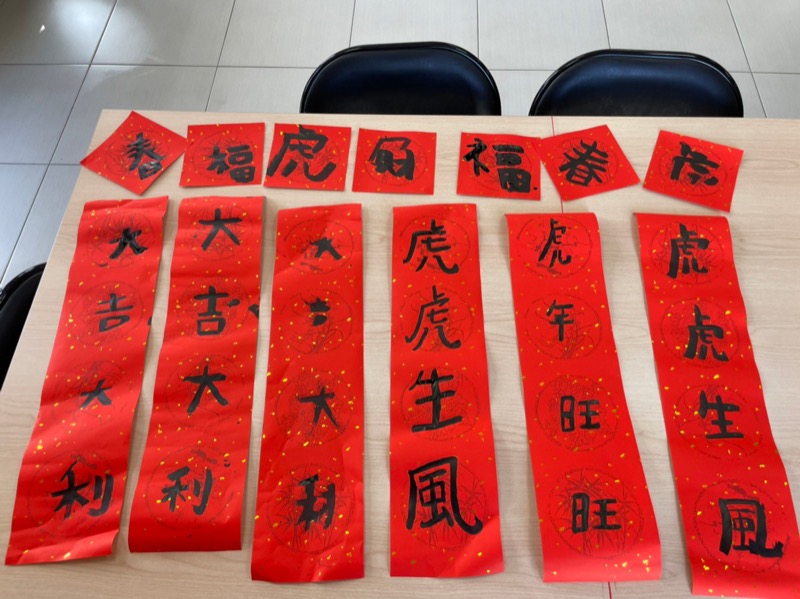 春
福
虎
財
福
春
虎
大吉大利
大吉大利
大吉大利
虎虎生風
虎年旺旺
虎虎生風